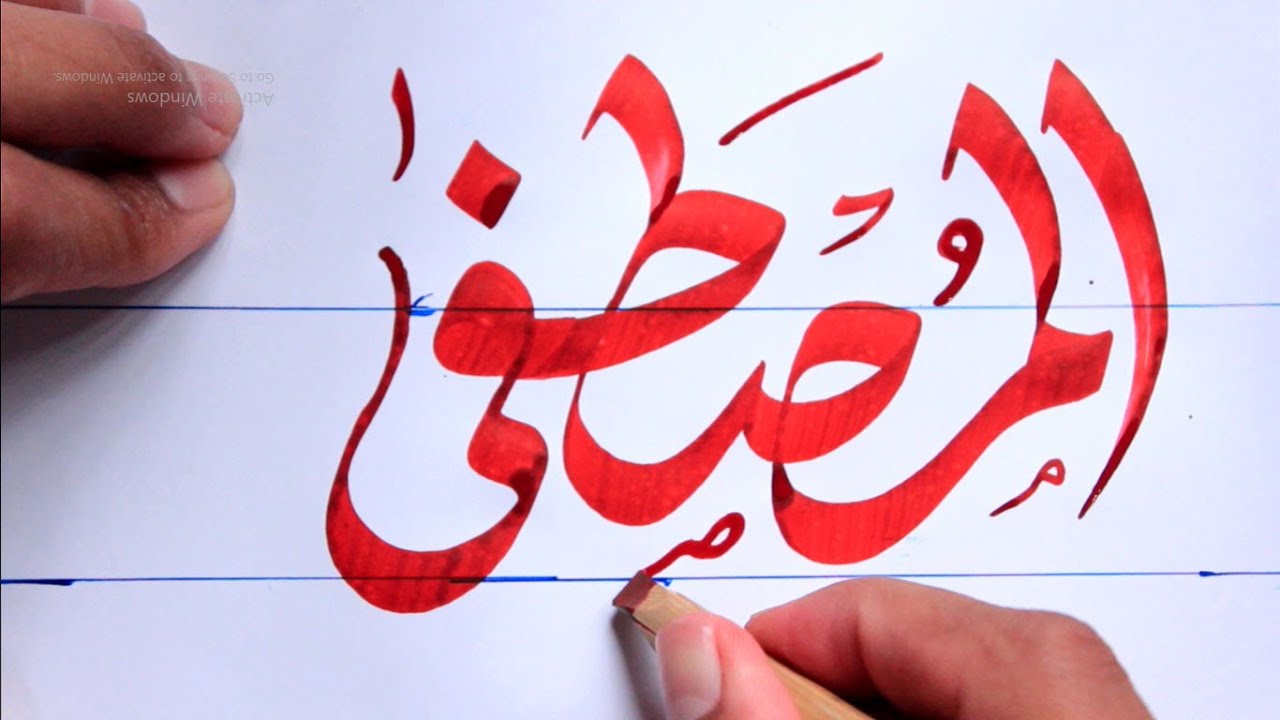 المُصْطَفىٰ
Activate Windows
Go to Settings to activate Windows.